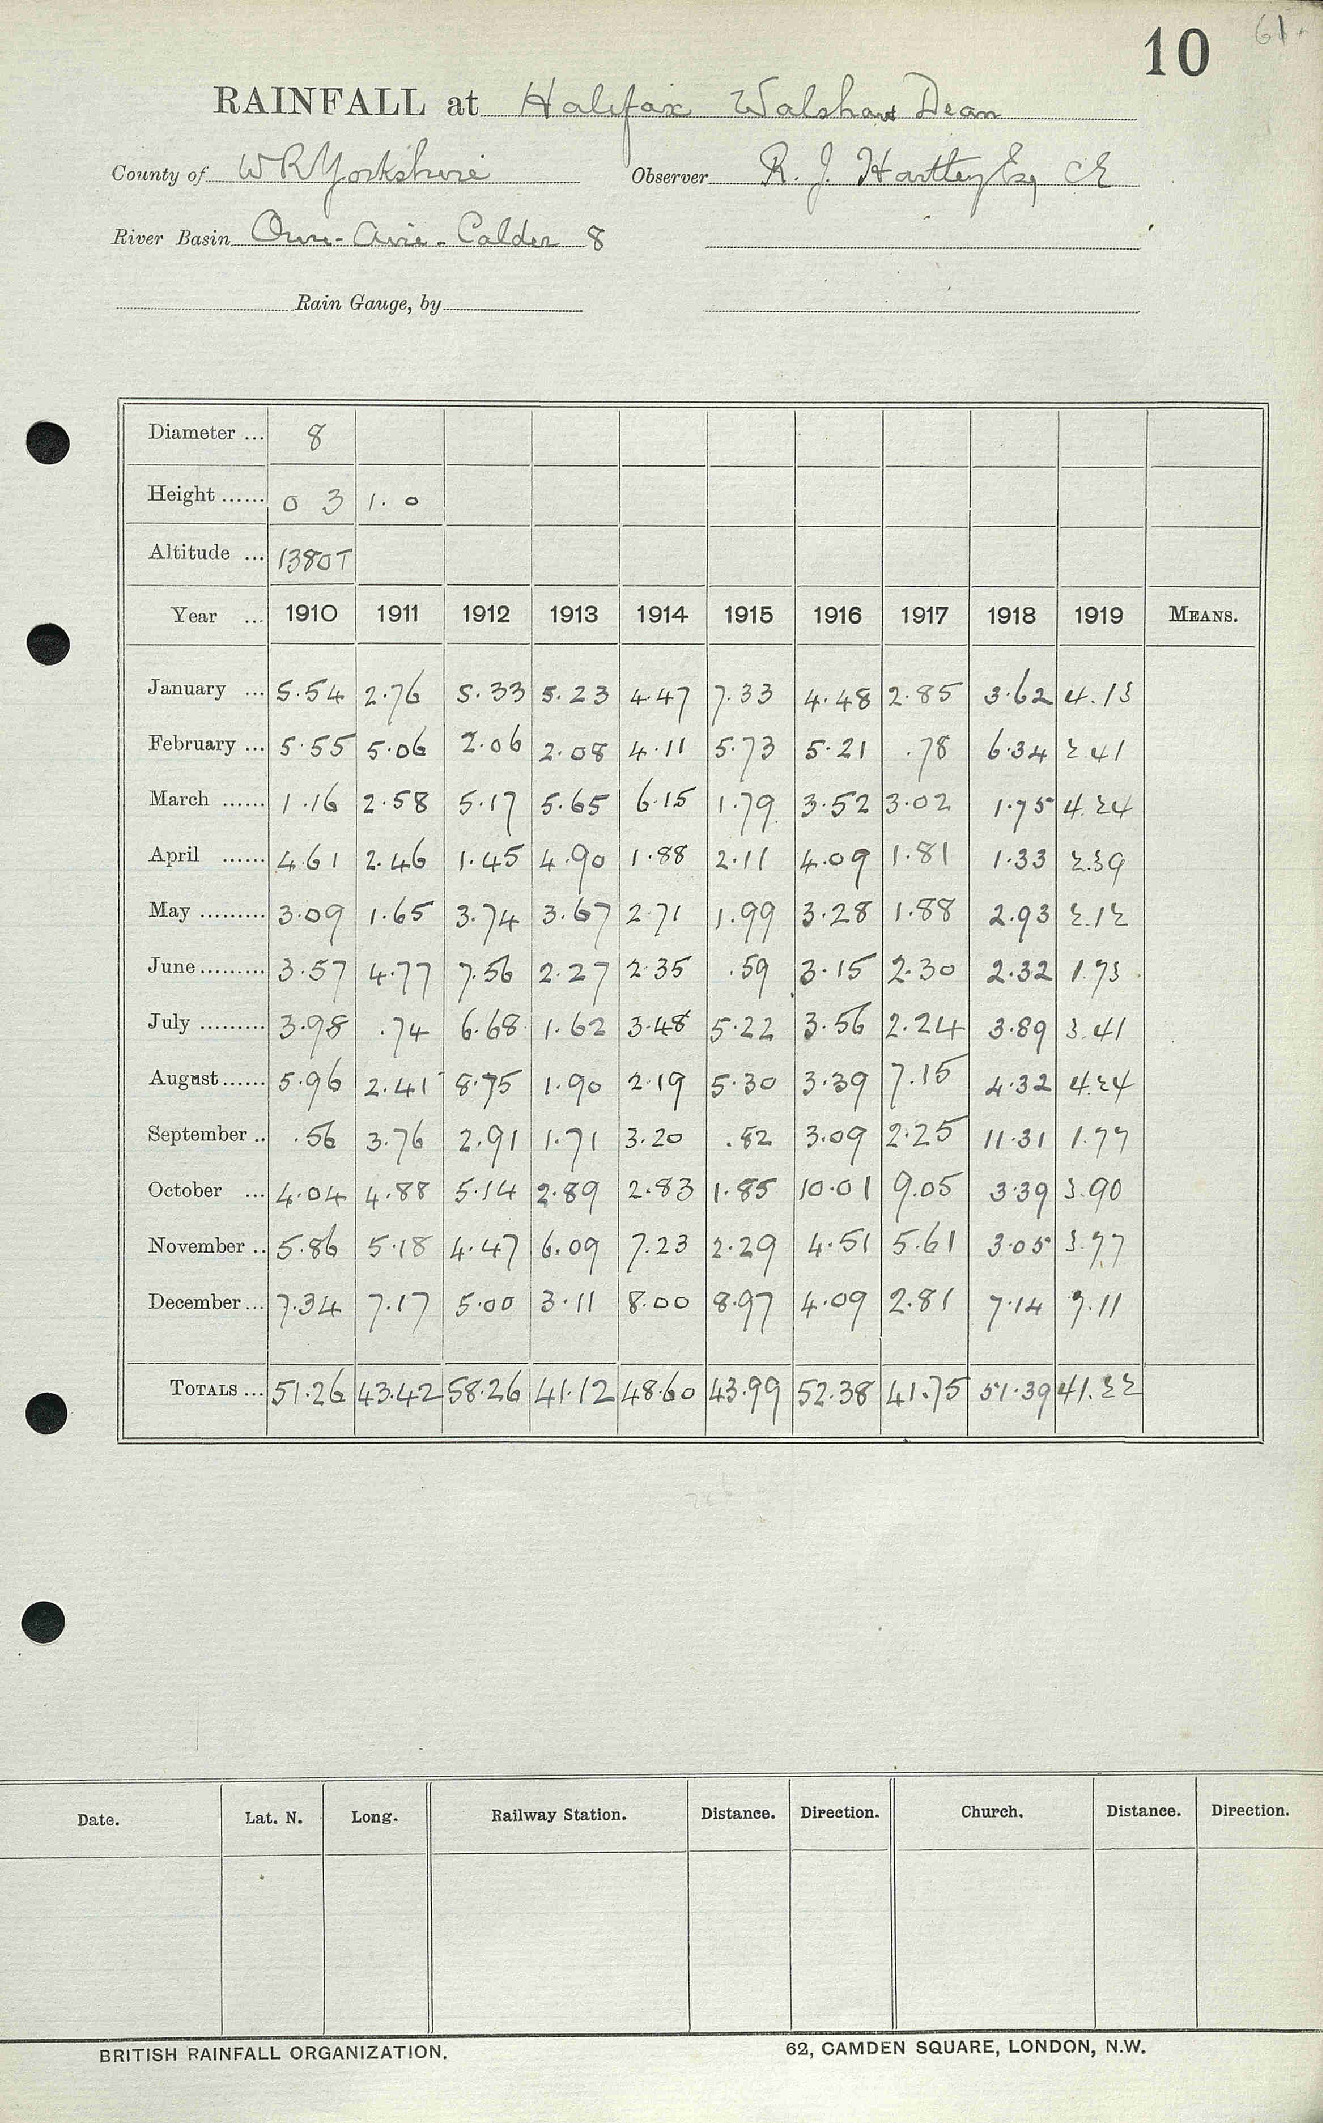 10
61
RAINFALL at Halifax Walshaw Dean
County of W R Yorkshire Observer R. J. Hartley Esq CE
River Basin Ouse - Aire - Calder 8
Rain Gauge, by
Diameter ... 8
Height ...... 0 3 1. 0
Altitude ... 1380T
Year ... 1910 1911 1912 1913 1914 1915 1916 1917 1918 1919 MEANS.
January ... 5.54 2.76 5.33 5.23 4.47 7.33 4.48 2.85 3.62 4.13
February ... 5.55 5.06 2.06 2.08 4.11 5.73 5.21 .78 6.34 2.41
March ...... 1.16 2.58 5.17 5.65 6.15 1.79 3.52 3.02 1.75 4.24
April ...... 4.61 2.46 1.45 4.90 1.88 2.11 4.09 1.81 1.33 2.39
May ......... 3.09 1.65 3.74 3.67 2.71 1.99 3.28 1.88 2.93 2.12
June ......... 3.57 4.77 7.56 2.27 2.35 .59 3.15 2.30 2.32 1.73
July ......... 3.98 .74 6.68 1.62 3.48 5.22 3.56 2.24 3.89 3.41
August ...... 5.96 2.41 8.75 1.90 2.19 5.30 3.39 7.15 4.32 4.24
September .. .56 3.76 2.91 1.71 3.20 .82 3.09 2.25 11.31 1.77
October ... 4.04 4.88 5.14 2.89 2.83 1.85 10.01 9.05 3.39 3.90
November .. 5.86 5.18 4.47 6.09 7.23 2.29 4.51 5.61 3.05 3.77
December ... 7.34 7.17 5.00 3.11 8.00 8.97 4.09 2.81 7.14 7.11
TOTALS ... 51.26 43.42 58.26 41.12 48.60 43.99 52.38 41.75 51.39 41.22
Date. Lat. N. Long. Railway Station. Distance. Direction. Church. Distance. Direction.
BRITISH RAINFALL ORGANIZATION. 62, CAMDEN SQUARE, LONDON, N.W.